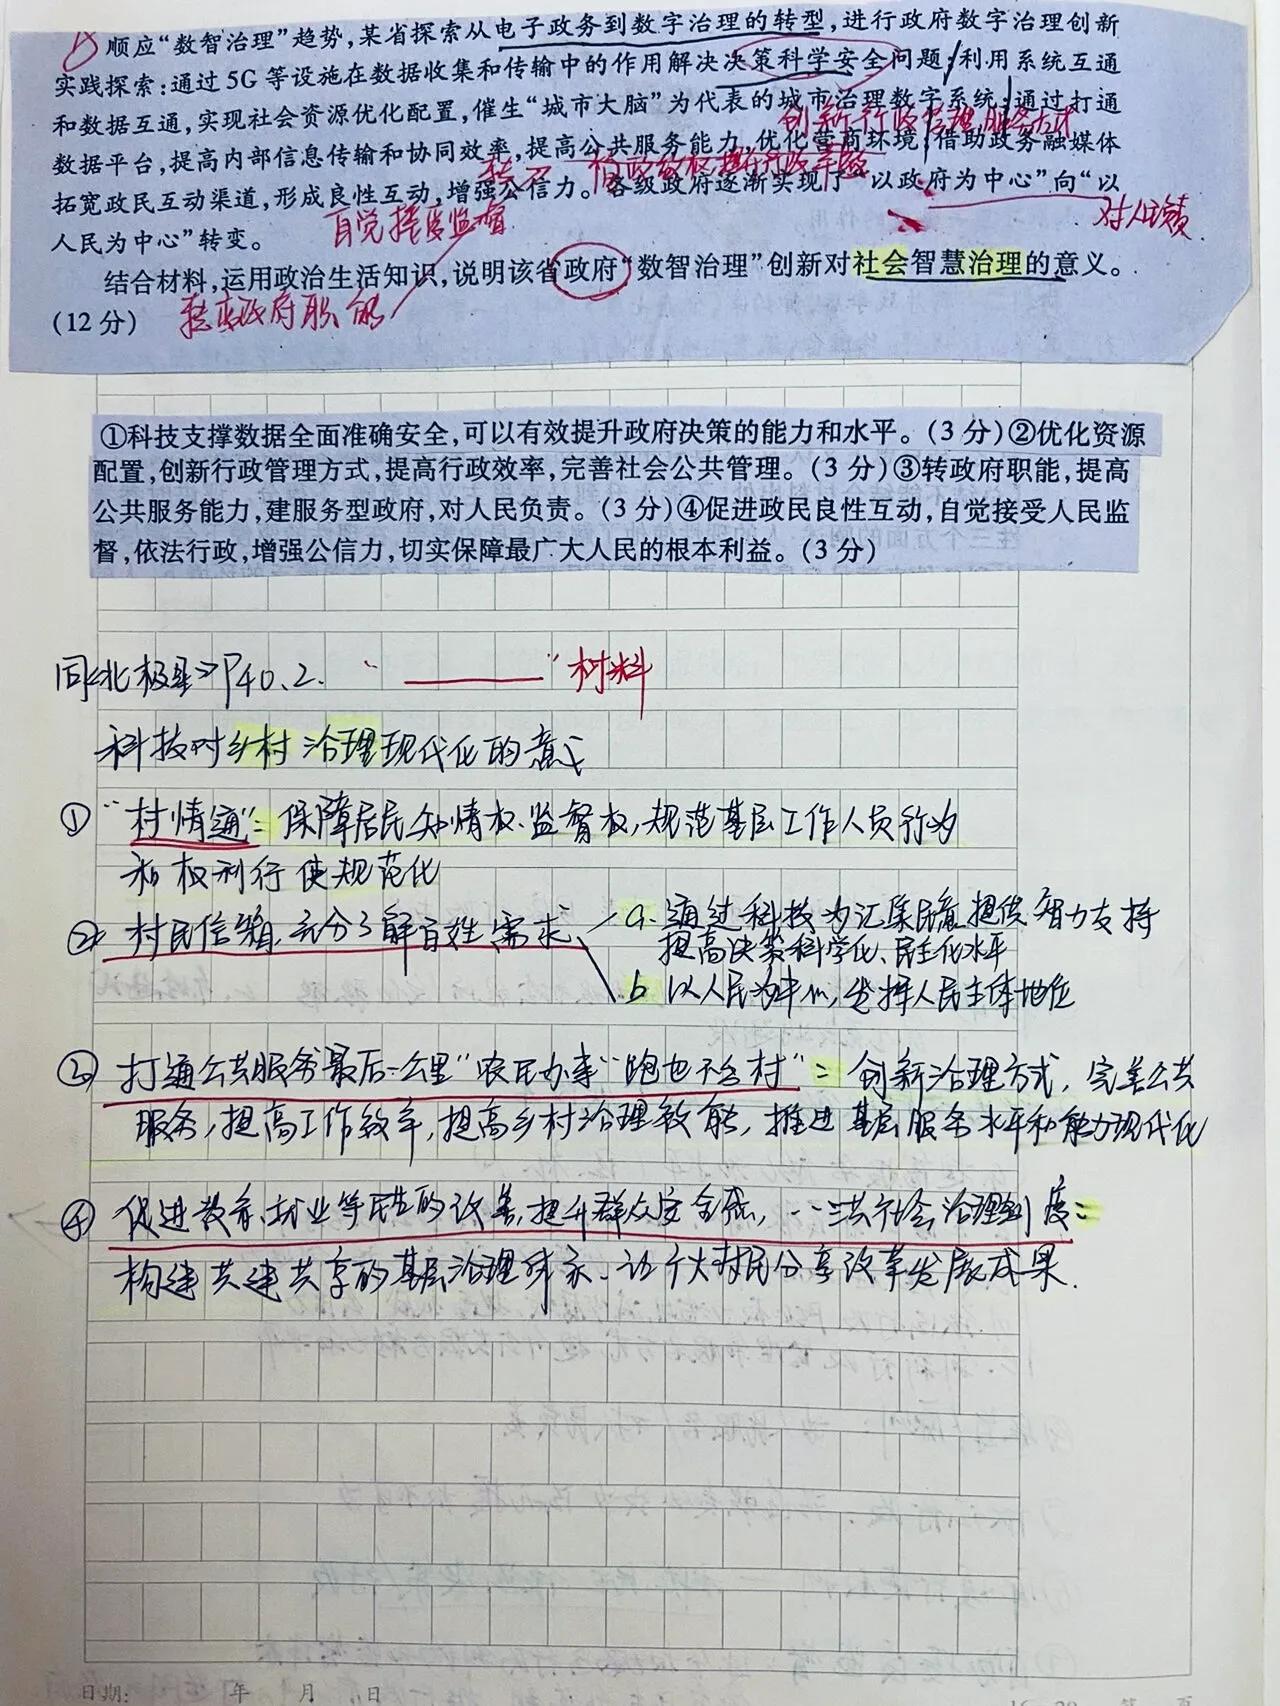 顺应“数智治理”趋势,某省探索从电子政务到数字治理的转型,进行政府数字治理创新
实践探索:通过5G等设施在数据收集和传输中的作用解决决策科学安全问题;利用系统互通
和数据互通,实现社会资源优化配置,催生“城市大脑”为代表的城市治理数字系统;通过打通
创新行政管理服务方式
数据平台,提高内部信息传输和协同效率,提高公共服务能力,优化营商环境;借助政务融媒体
拓宽政民互动渠道,形成良性互动,增强公信力。各级政府逐渐实现了“以政府为中心”向“以
对人民负责
人民为中心”转变。
自觉接受监督
结合材料,运用政治生活知识,说明该省政府“数智治理”创新对社会智慧治理的意义。
(12分)
转变政府职能
①科技支撑数据全面准确安全,可以有效提升政府决策的能力和水平。(3分)②优化资源
配置,创新行政管理方式,提高行政效率,完善社会公共管理。(3分)③转政府职能,提高
公共服务能力,建服务型政府,对人民负责。(3分)④促进政民良性互动,自觉接受人民监
督,依法行政,增强公信力,切实保障最广大人民的根本利益。(3分)
同《北极星》P40.2. “______”材料
科技对乡村治理现代化的意义
①“村情通”:保障居民知情权、监督权,规范基层工作人员行为
和权利行使规范化
② 村民信箱,充分了解百姓需求
a. 通过科技为汇集民意提供智力支持
提高决策科学化、民主化水平
b 以人民为中心,发挥人民主体地位
③ 打通公共服务最后一公里“农民办事”跑也不出村”:创新治理方式,完善公共
服务,提高工作效率,提高乡村治理效能,推进基层服务水平和能力现代化
④ 促进教育、就业等民生的改善,提升群众安全感,……共社会治理制度:
构建共建共享的基层治理体系、让广大村民分享改革发展成果.
日期: 年 月 日